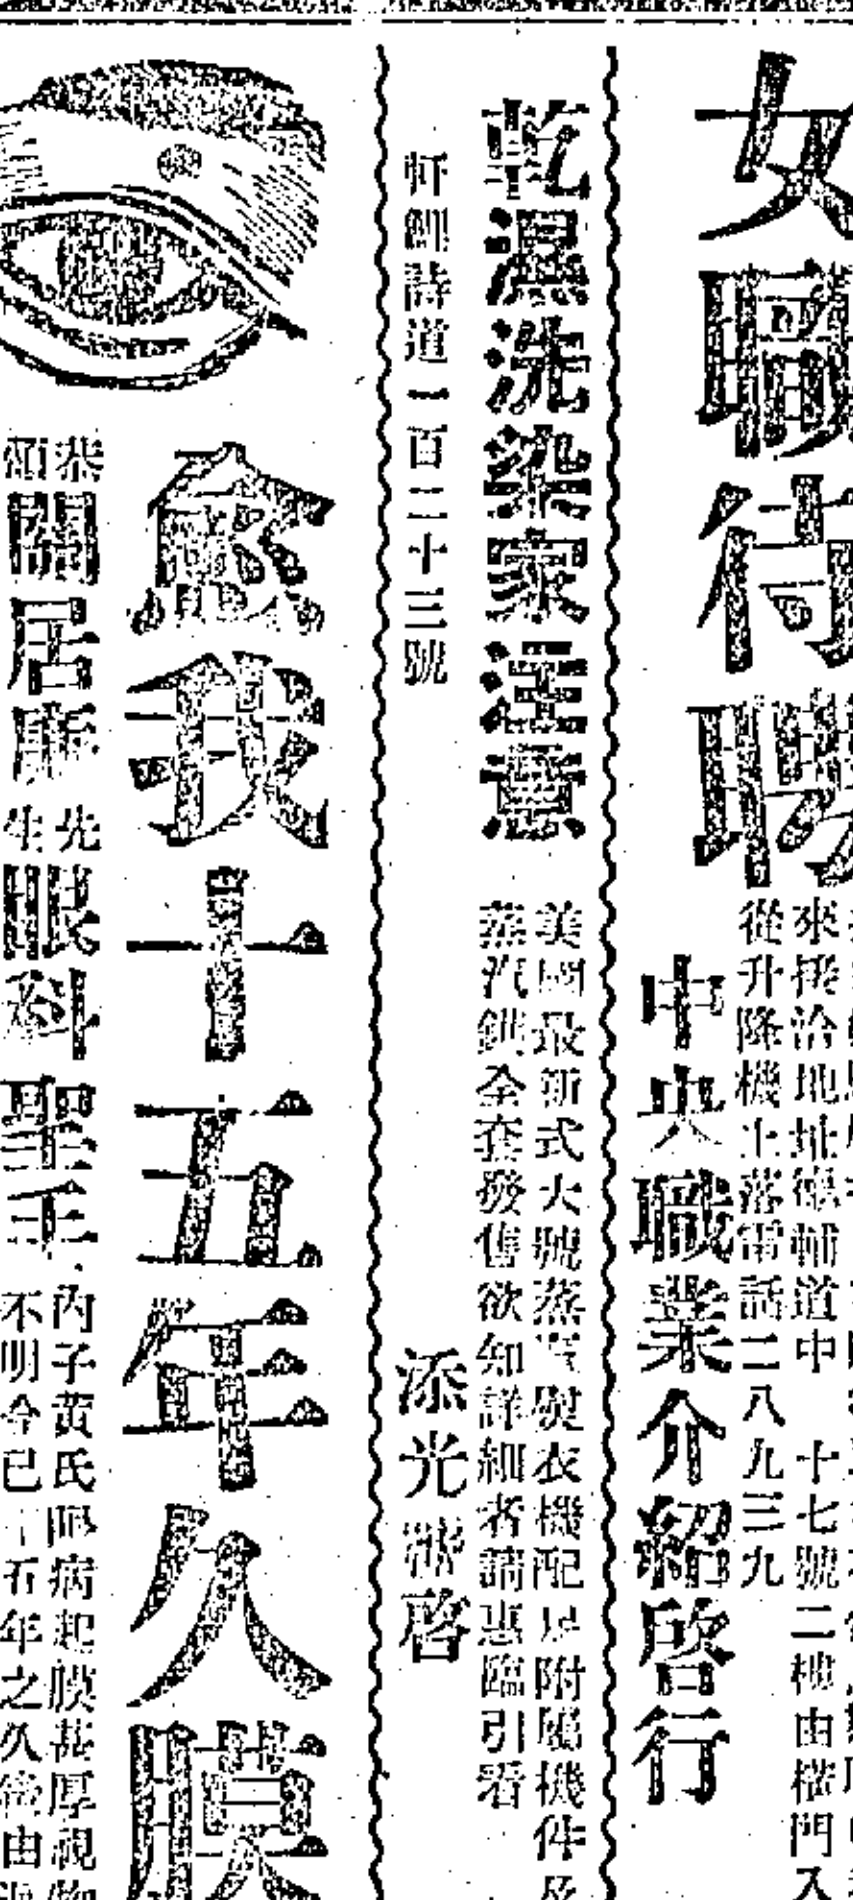 女職待聘
來接洽地址德輔道中 十七號二樓由橫門入
從升降機上落電話二八九三九
中央職業介紹啓行
乾濕洗染家注意
美國最新式大號蒸 熨衣機配 附屬機件及
蒸汽鍋全套發售欲知詳細者請惠臨引看
軒鯉詩道一百二十三號
添光 啓
愈我十五年久膜
恭頌
關居廉先生
眼科聖手
內子黃氏眼病起膜甚厚視物
不明今已十五年之久 由